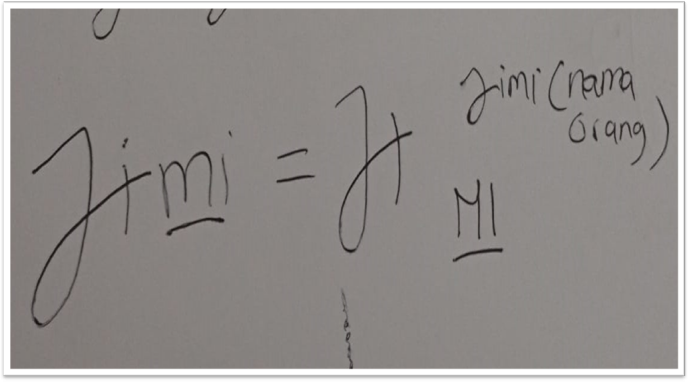 Jimi (nama
orang)
Jimi = Ji
MI